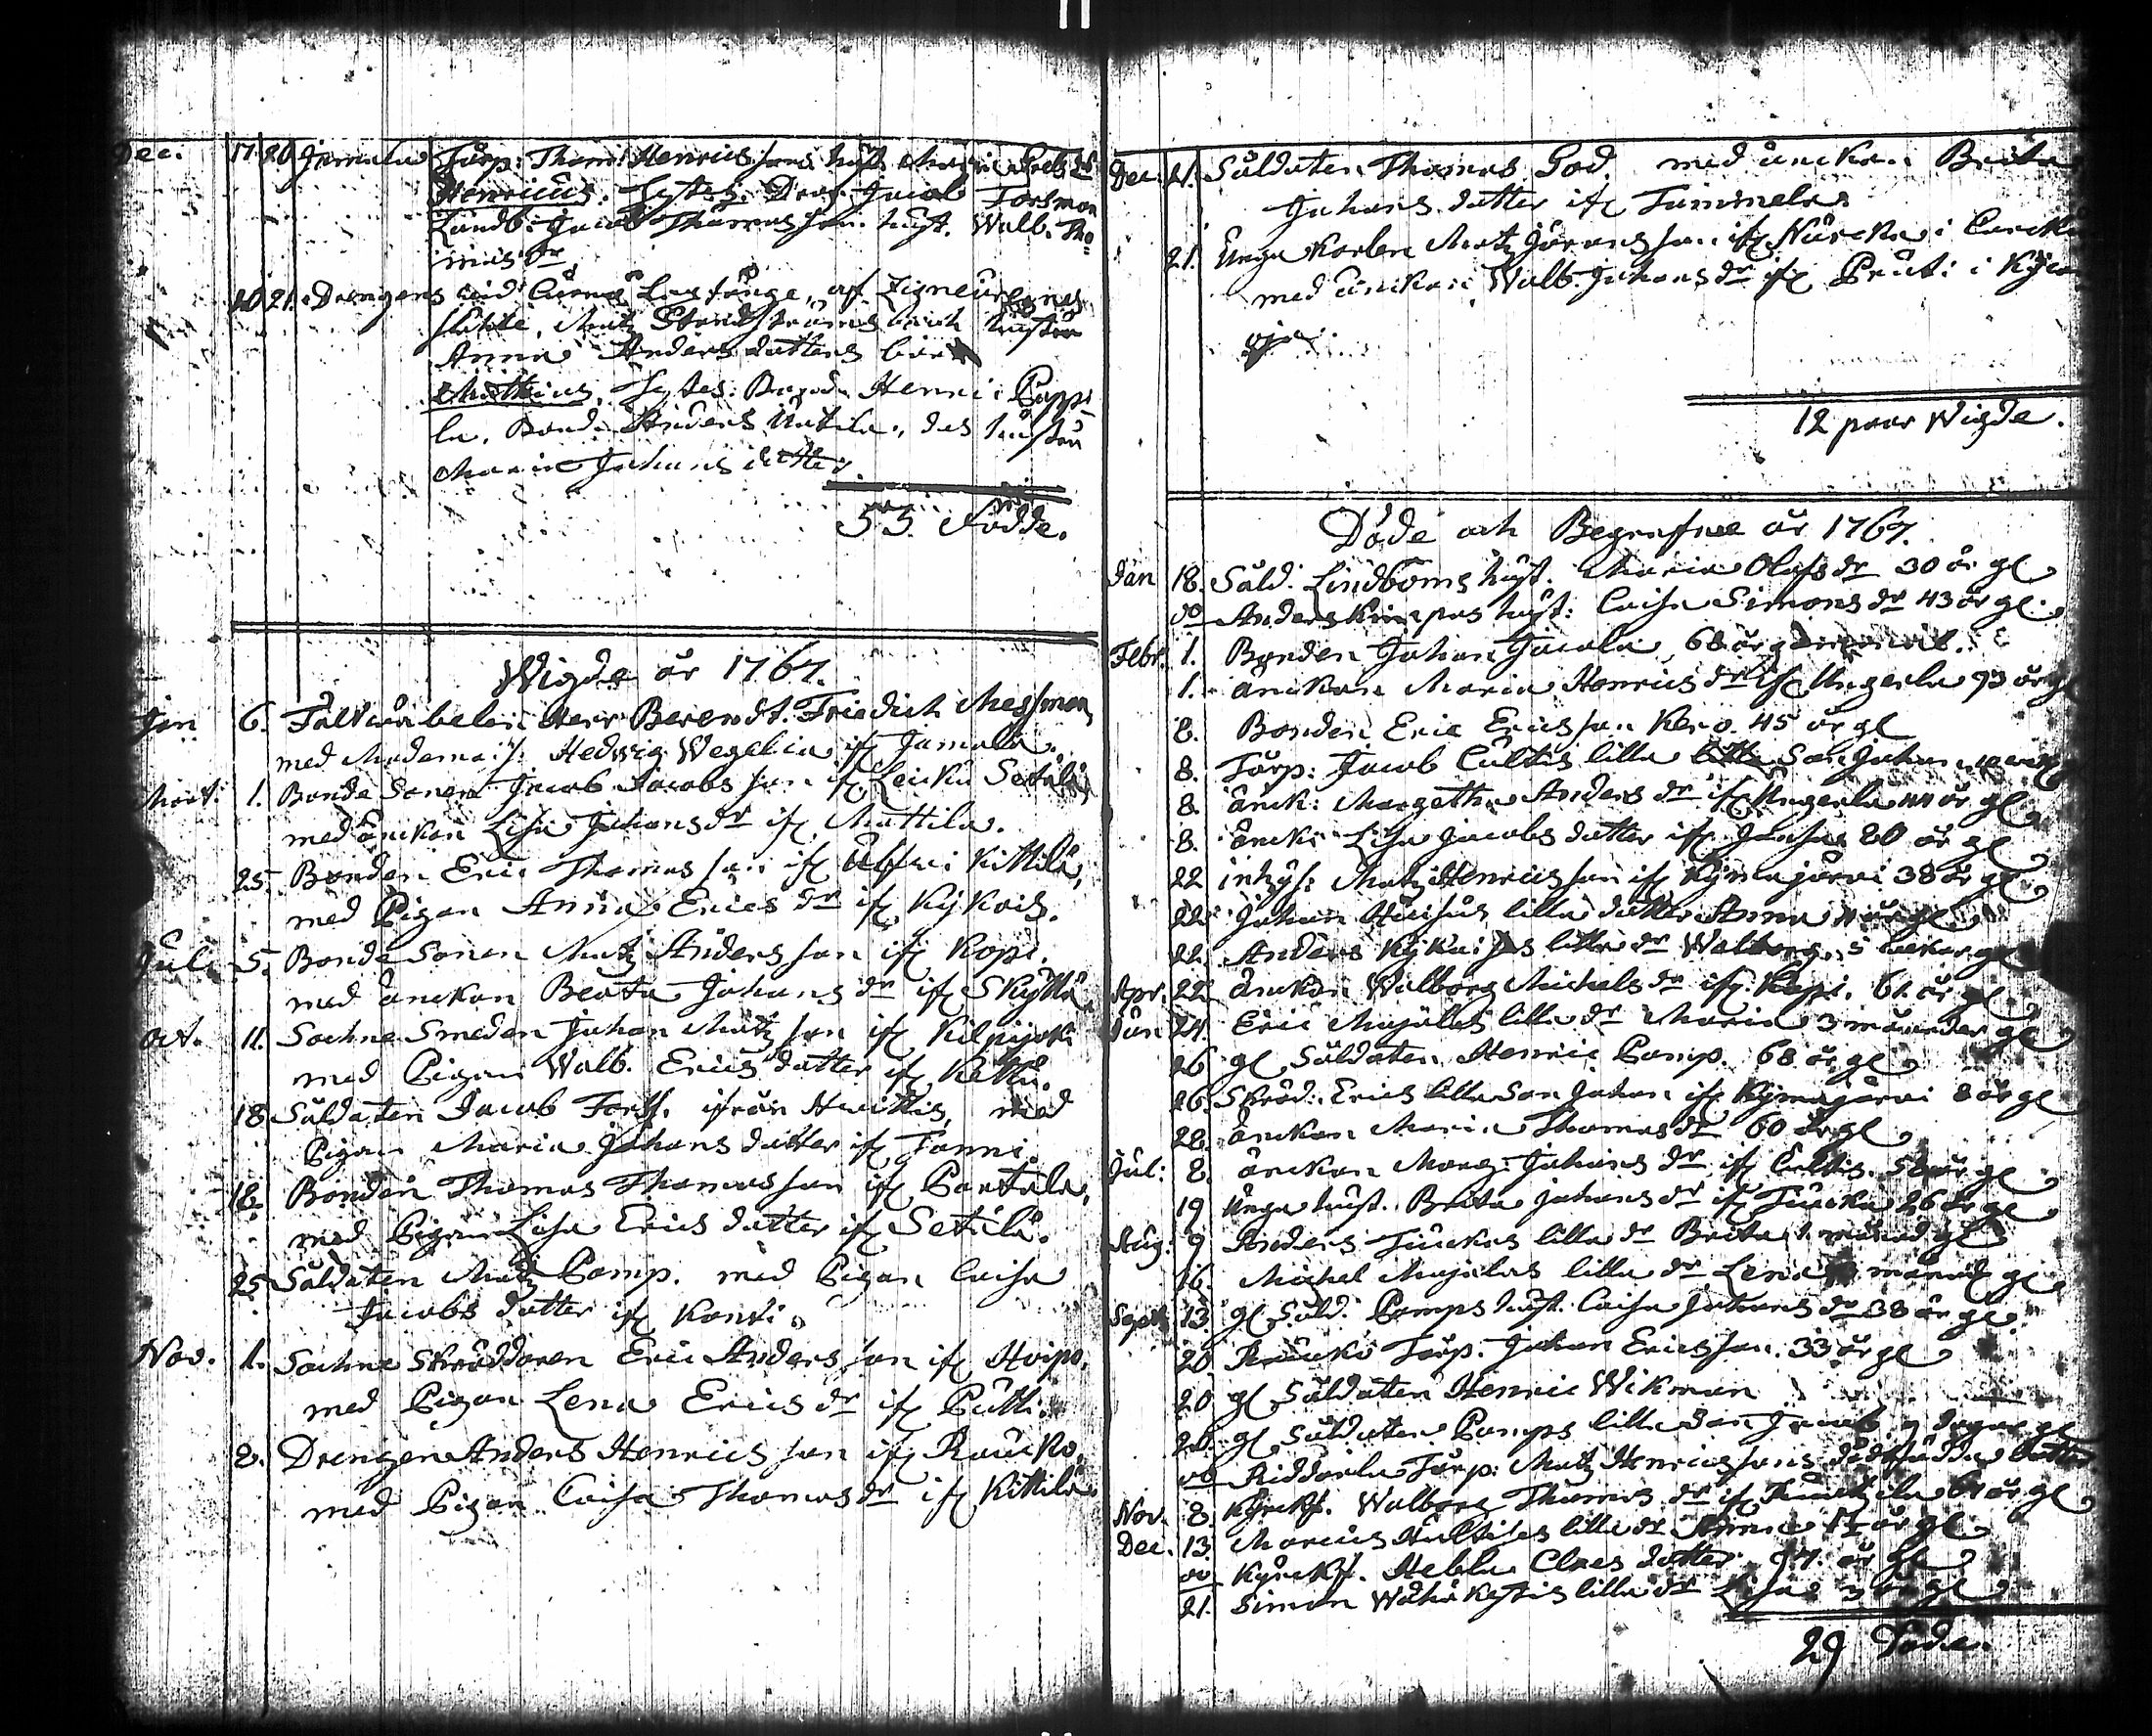 Dec. 17. 20. Jamala Torp: Thom: Henricssons hust. Maria
Henricus. Testes: Dreng Jacob Forsman
Landb: Jacob Thomasson. hust. Walb. Tho-
mas dr
20 21. Drengens wid
Matz och hustru
Anna Andersdotters barn
Matthias. Testes: Bonden Henric Pappi-
la. Bond. Anders Uotila, des hustru
Maria Johans dotter.
55. Födde.
Wigde år 1767.
Jan 6. Fältwäbelen Herr Berendt Friedrich Messman,
med Mademois. Hedwig Wegelia if Jamala.
Mart: 1. Bonde Sonen Jacob Jacobsson if Leikku Setälä
med änckan Lisa Johans dr if Mattila.
25. Bonden Eric Thomas son if Kittilä,
med Pigan Anna Erics dr if Kykois.
Juli 5. Bonde Sonen Matz Andersson if Kopi.
med änckan Beata Johans dr if Skyttä
Oct. 11. Sochne Smeden Johan Matz son if Kilpijoki
med Pigan Walb. Erics dotter if
18 Soldaten Jacob Forss. ifrån Huittis, med
Pigan Maria Johans dotter if Tanni.
18. Bonden Thomas Thomasson if Pantala,
med Pigan Lisa Erics dotter if Setälä.
25 Soldaten Matz Pamp. med Pigan Caisa
Jacobs dotter if Kanti.
Nov. 1. Sochne Skräddaren Eric Andersson if Hoipo,
med Pigan Lena Erics dr if Putti.
8. Drengen Anders Henricsson if Raucko,
med Pigan Caisa Thomas dr if Kittilä.
Dec. 21. Soldaten Thomas God. med änckan Brita
Johans dotter if Tammela
21. Unga Karlen Matz Göransson if
med änckan Walb. Johans dr if i
oja.
12 paar Wigde.
Döde och Begrafne år 1767.
Jan 18. Sold. Lindboms hust. Maria Olofs dr 30 år gl
do Anders Kimpas hust: Caisa Simons dr 43 år gl.
Febr. 1. Bonden Johan Jacola, 68 år
1. änckan Maria Henrics dr if Ungerla 73 år gl
8. Bonden Eric Ericsson Kero 45 år gl
8. Torp: Jacob Cultis lilla Son Johan
8. änck: Margetha Anders dr if Ungerla 44 år gl
8. änck: Lisa Jacobs dotter if 80 år gl
22 inhys: Matz Henricsson if Kymajärvi 38 år gl
22. Johan lilla dotter Anna år gl
22. Anders lilla dr Walborg. 5 weckor gl
Apr. 22. änckan Walborg Michels dr if Kopi. 61 år gl.
Jun 24. Eric Majalas lilla dr Maria 3 månader gl
26 gl Soldaten Henric Pamp. 68 år gl
26. Skräd: Erics lilla Son Johan if Kymajärvi 8 år gl
28. änckan Maria Thomas dr 60 år gl
Jul: 8. änckan Marg: Johans dr if Cultis. år gl
19 Unga hust. Brita Johans dr if 26 år gl
Aug: 9 Anders lilla dr Brita 1 månad gl
16. Michel Majalas lilla dr Lena månad gl
Sept. 13 gl Sold. Pamps hust. Caisa Johans dr 38 år gl.
20. Raucko Torp. Johan Ericsson. 33 år gl
20 gl Soldaten Henric Wikman
20. gl Soldaten Pamps lilla Son Jacob 9 dagar gl
do Riddarla Torp: Matz Henricssons dödfödda dotter
Nov. 8 Kyrckf. Walborg Thomas dr if år gl
Dec. 13. Marcus lilla dr Anna år gl
do Kyrckf. Hebla Claes dotter år gl
21. Simon Wähäkestis lilla dr Lisa gl
29 Döde.